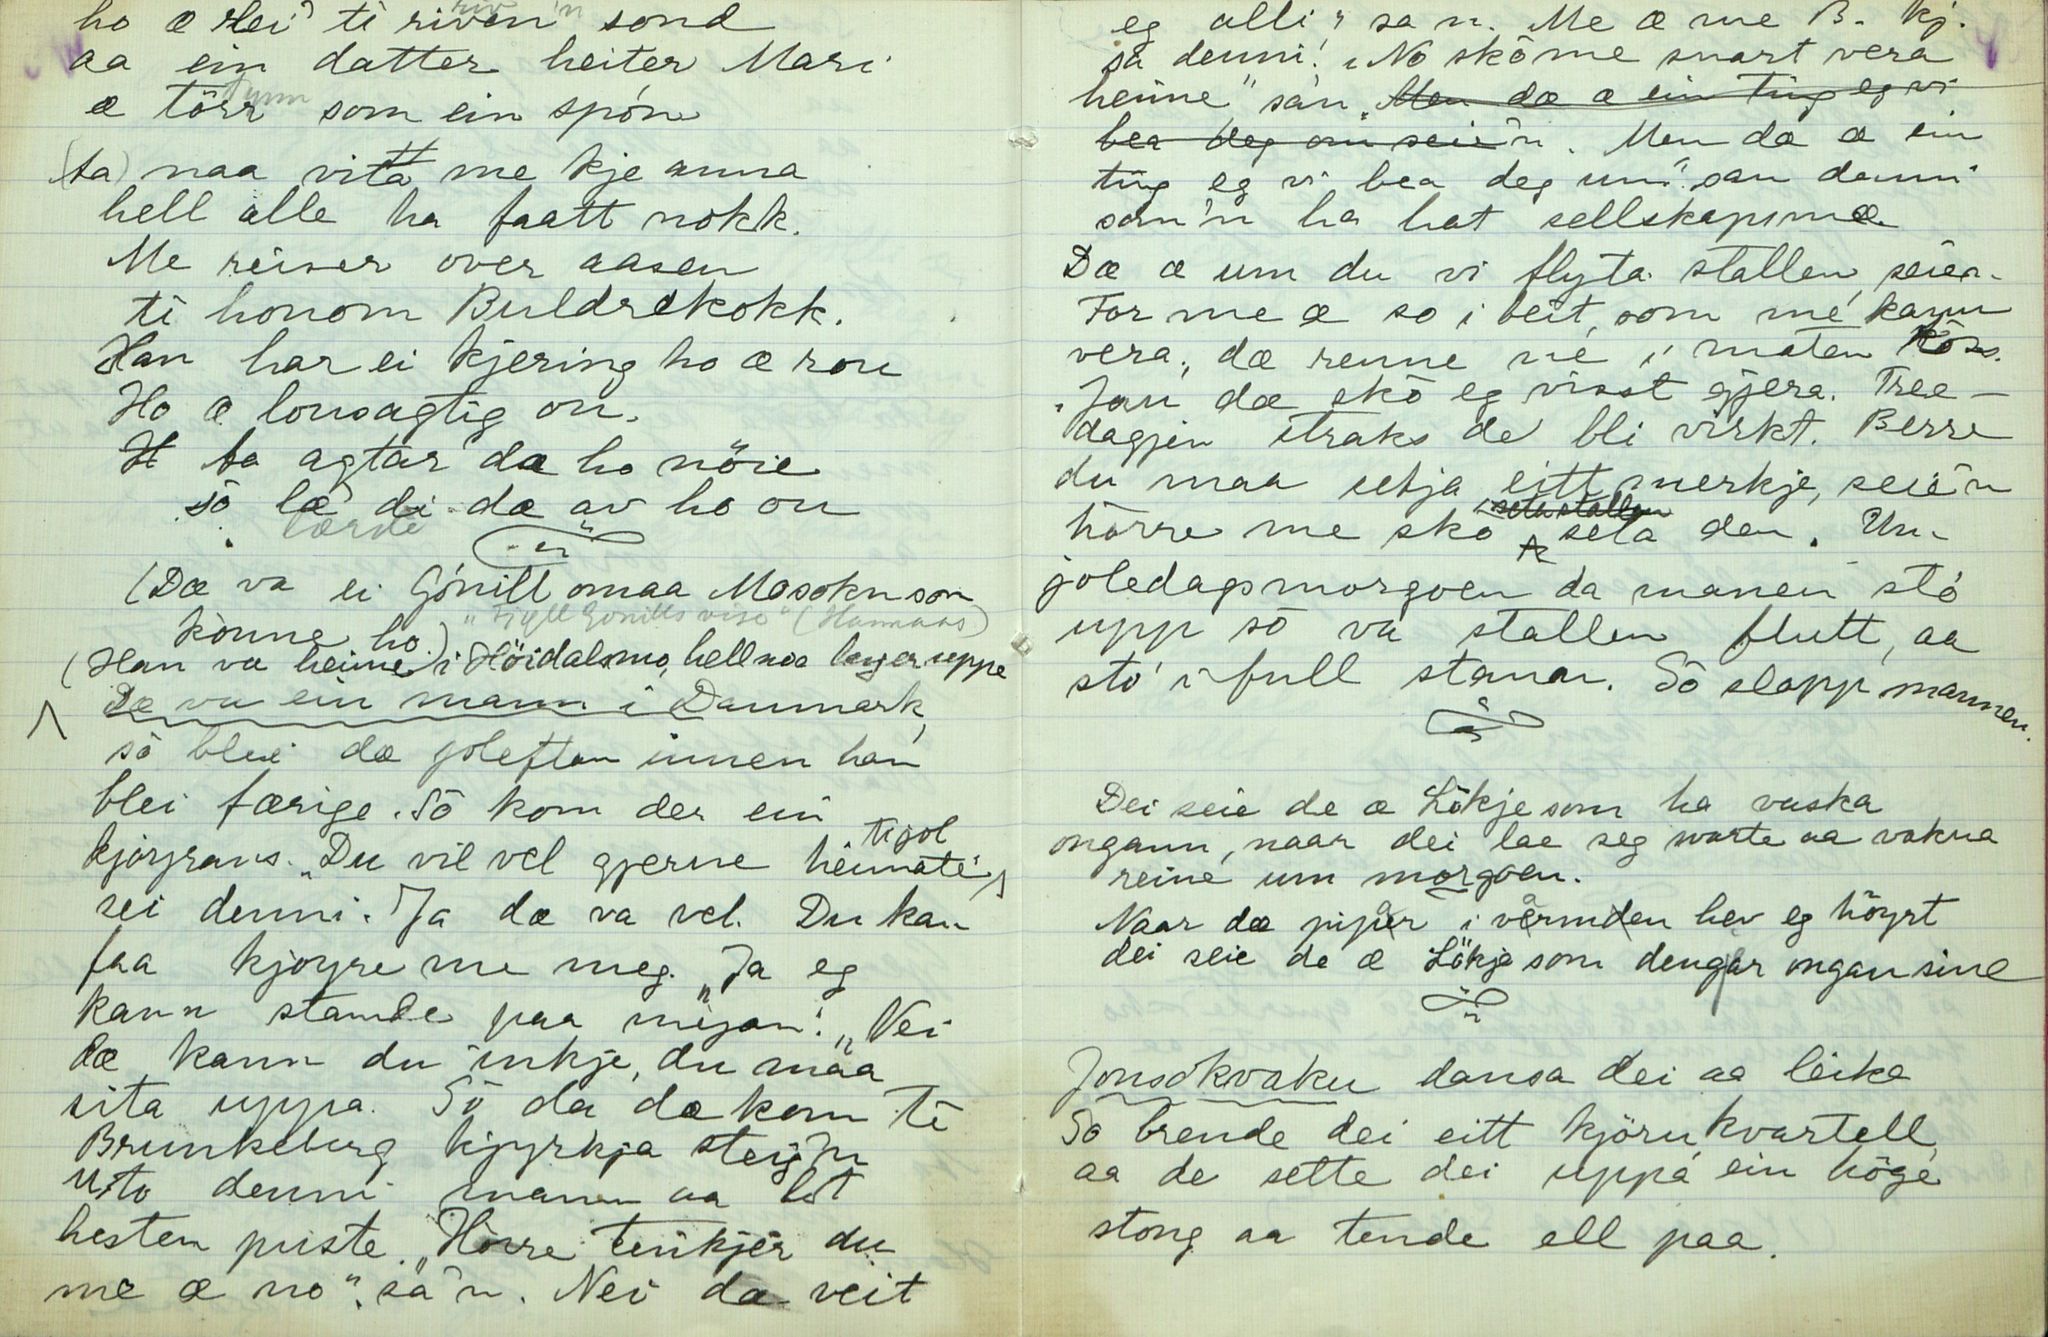 ho æ rei ti riven sond
aa ein datter heiter Mari
tynn
æ törr som ein spón
(ta) naa vita me kje anna
hell alle ha faatt nokk.
Me reiser over aasen
ti honom Buldrekokk.
Han har ei kjering ho æ rou
Ho æ lonsagtig on.
ta agtar dæ ho nöie
so læ di dæ av ho on
lærde
(Dæ va ei Gónill omaa Mosokn son
konne ho.) "Fyll Gonills vise" (Hannaas)
(Han va heime) i Höidalsmo, hell noa lenger uppe
Dæ va ein mann i Danmark,
so blei dæ joleftan innen han
blei færige. So kom der ein
kjøyrans. "Du vil vel gjerne heimate ti jol
sei denni. Ja dæ va vel. Du kan
faa kjøyre me meg. "Ja eg
kann stande paa mejan". "Nei
dæ kann du inkje, du maa
sita uppa. So da dæ kom ti
Brunkeberg kjyrkja steig'n
uto denni mann aa lot
hesten puste. "Hórre tenkjer du
me æ no". sa'n. Nei dæ veit
eg alli", sa'n. Me æ me B. kj.
sa denni. "No sko me snart vera
heime" sa'n. Men dæ æ ein ting eg vi
bea deg om seie'n. Men dæ æ ein
ting eg vi bea deg um" san denni
som'n ha hat sellskap mæ
Dæ æ um du vi flyta stallen, seier
For me æ so i beit, som me kann
vera, dæ renne ne i maten koss.
"Jau dæ sko eg visst gjera. Tree-
dagjen straks de bli virkt. Berre
du maa setja eitt merkje, seie'n
hörre me sko seta den. Um
joledagsmorgoen da manen sto
upp so va stallen flutt, aa
sto i full stann. So slapp mannen.
Dei seie de æ Lökje som ha vaska
ongann, naar dei lae seg svarte aa vakna
reine um morgoen.
Naar dæ pipar i varmden hev eg höyrt
dei seie de æ Lökje som dengjar ongan sine
Jonsokvaku dansa dei aa leika
So brende dei eitt kjörukvartell,
aa de sette dei uppá ein höge
stong aa tende ell paa.